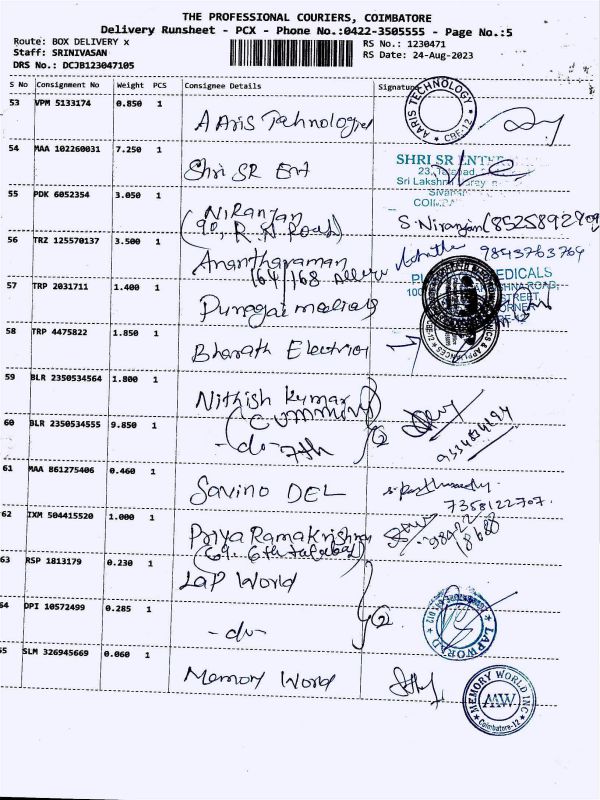 THE PROFESSIONAL COURIERS, COIMBATORE
Delivery Runsheet - PCX - Phone No.:0422-3505555 - Page No.:5
Route: BOX DELIVERY x
RS No.: 1230471
Staff: SRINIVASAN
RS Date: 24-Aug-2023
DRS No.: DCJB123047105
S No Consignment No Weight PCS Consignee Details Signature
53 VPM 5133174 0.850 1 A Aris Tahnologied
AARIS TECHNOLOGY CBE-12
54 MAA 102260031 7.250 1 Shri SR Ent
SHRI SR ENTER
23, Tatabad
Sri Lakshmi
COIMBA
55 PDK 6052354 3.050 1 NiRanjan
(90, R.K Road)
S. Niranjan (8525892909
56 TRZ 125570137 3.500 1 Anantharaman
164/168
9843763769
57 TRP 2031711 1.400 1 Punagai medicals
EDICALS
ROAD,
STREET,
58 TRP 4475822 1.850 1 Bharath Electrics
& APPLIANCES
59 BLR 2350534564 1.800 1 Nithish Kumar
(Cummins)
60 BLR 2350534555 9.850 1 -do- 7th
2
61 MAA 861275406 0.460 1 Savino DEL
7358122707.
62 IXM 504415520 1.000 1 Priya Ramakrishnan
(69. 6th tatabad)
98422
18688
63 RSP 1813179 0.230 1 Lap World
64 DPI 10572499 0.285 1 -do-
2
LAP WORLD
65 SLM 326945669 0.060 1 Memory World
MEMORY WORLD INC MW Coimbatore-12